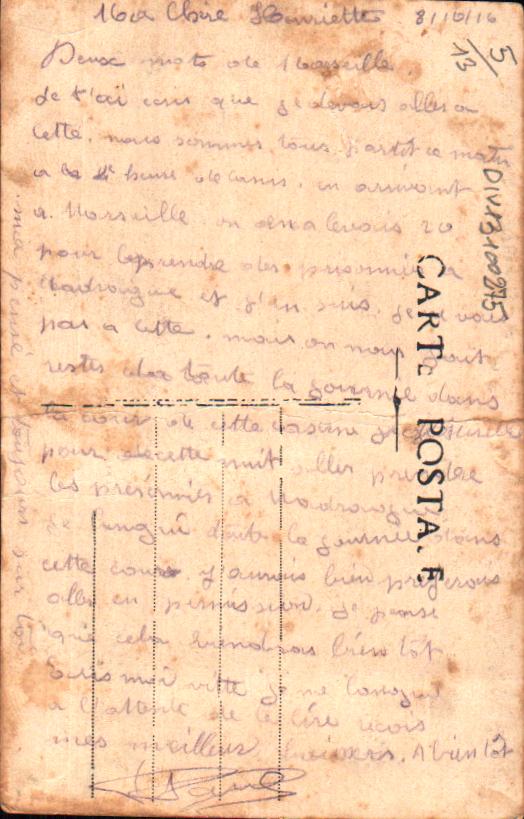 Ma Chère Henriette 8/10/16
5/13
Deux mots de Marseille.
Je t'ai écris que je devais aller a
Cette. nous sommes tous partit ce matin
a la heure de Cannes, en arrivant
a Marseille on a 20
pour prendre des prisonniers a
et j'en suis. je vais
pas a Cette. mais on nous fait
rester toute la journée dans
la cour de cette caserne
pour cette nuit aller prendre
les a
toute la journée dans
cette cour. j'aurais bien preferais
aller en permission. je pense
que cela viendras bientot
Ecris moi vitte je me langui
a l'attente de te lire reçois
mes meilleur baisers. A bientôt
ma pensé et toujours sur toi
CARTE POSTALE
DIV13100875